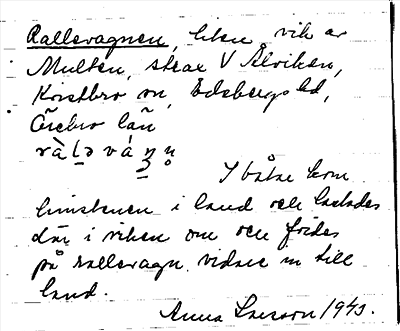 Rallevagnen, liten vik av
Multen, strax V Älviken,
Kvistbro sn, Edsbergs hd,
Örebro län
I båtar kom
timmerbilen i land och lastades
där i viken om och fördes
på rallevagn vidare in till
land.
Anna Larsson 1943.